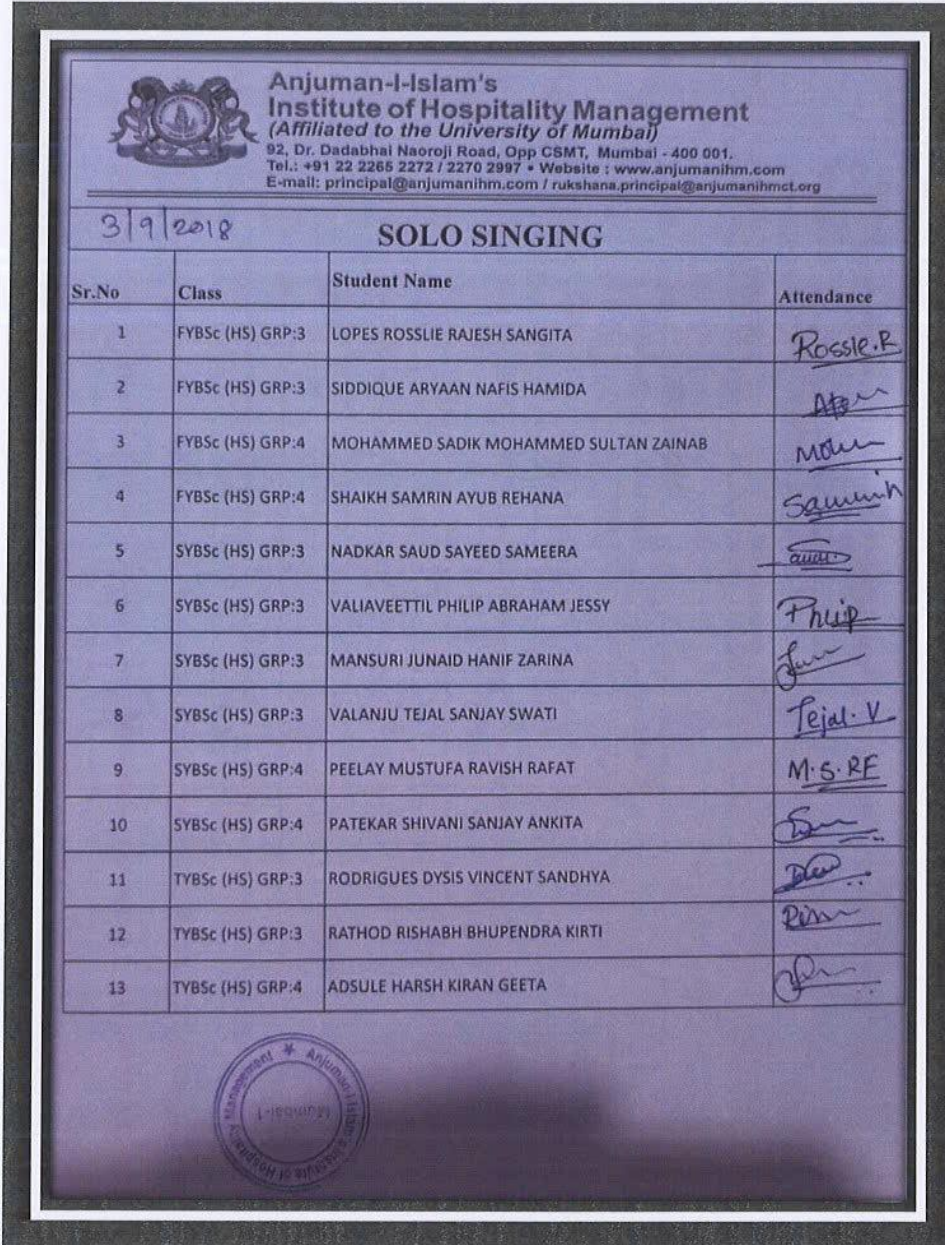 Anjuman-I-Islam's
Institute of Hospitality Management
(Affiliated to the University of Mumbai)
92, Dr. Dadabhai Naoroji Road, Opp CSMT, Mumbai - 400 001.
Tel.: +91 22 2265 2272 / 2270 2997 • Website : www.anjumanihm.com
E-mail: principal@anjumanihm.com / rukshana.principal@anjumanihmct.org
3/9/2018
SOLO SINGING
Sr.No Class Student Name Attendance
1 FYBSc (HS) GRP:3 LOPES ROSSLIE RAJESH SANGITA Rossle.R
2 FYBSc (HS) GRP:3 SIDDIQUE ARYAAN NAFIS HAMIDA
3 FYBSc (HS) GRP:4 MOHAMMED SADIK MOHAMMED SULTAN ZAINAB
4 FYBSc (HS) GRP:4 SHAIKH SAMRIN AYUB REHANA
5 SYBSc (HS) GRP:3 NADKAR SAUD SAYEED SAMEERA
6 SYBSc (HS) GRP:3 VALIAVEETTIL PHILIP ABRAHAM JESSY Philip
7 SYBSc (HS) GRP:3 MANSURI JUNAID HANIF ZARINA
8 SYBSc (HS) GRP:3 VALANJU TEJAL SANJAY SWATI Tejal. V
9 SYBSc (HS) GRP:4 PEELAY MUSTUFA RAVISH RAFAT M.S.RF
10 SYBSc (HS) GRP:4 PATEKAR SHIVANI SANJAY ANKITA
11 TYBSc (HS) GRP:3 RODRIGUES DYSIS VINCENT SANDHYA
12 TYBSc (HS) GRP:3 RATHOD RISHABH BHUPENDRA KIRTI
13 TYBSc (HS) GRP:4 ADSULE HARSH KIRAN GEETA
Anjuman-I-Islam's Institute of Hospitality Management
Mumbai-1